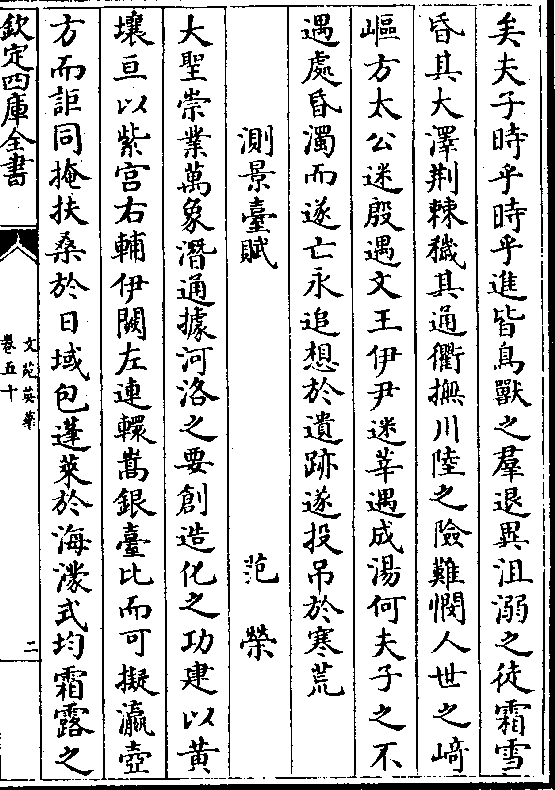 矣夫子時乎時乎進皆鳥獸之羣退異沮溺之徒霜雪
昏其大澤荆棘穢其通衢撫川陸之險難憫人世之﨑
嶇方太公迷殷遇文王伊尹迷莘遇成湯何夫子之不
遇處昏濁而遂亡永追想於遺跡遂投吊於寒荒
測景臺賦 范榮
大聖崇業萬象潛通據河洛之要創造化之功建以黄
壤亘以紫宫右輔伊闕左連轘嵩銀臺比而可擬瀛壺
方而詎同掩扶桑於日域包蓬萊於海濛式均霜露之
欽定四庫全書
文苑英華
卷五十
二